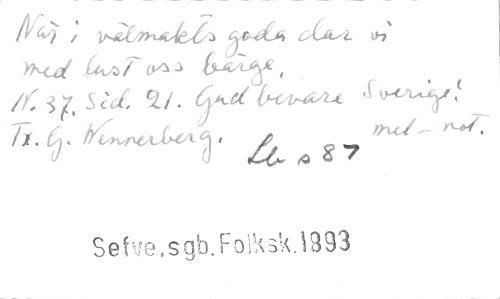 När i välmakts goda dar vi
med lust oss bärge,
N. 37. Sid. 21. Gud bevare Sverige!
Tx. G. Wennerberg. mel-not.
Lb s 87
Sefve, sgb. Folksk. 1893